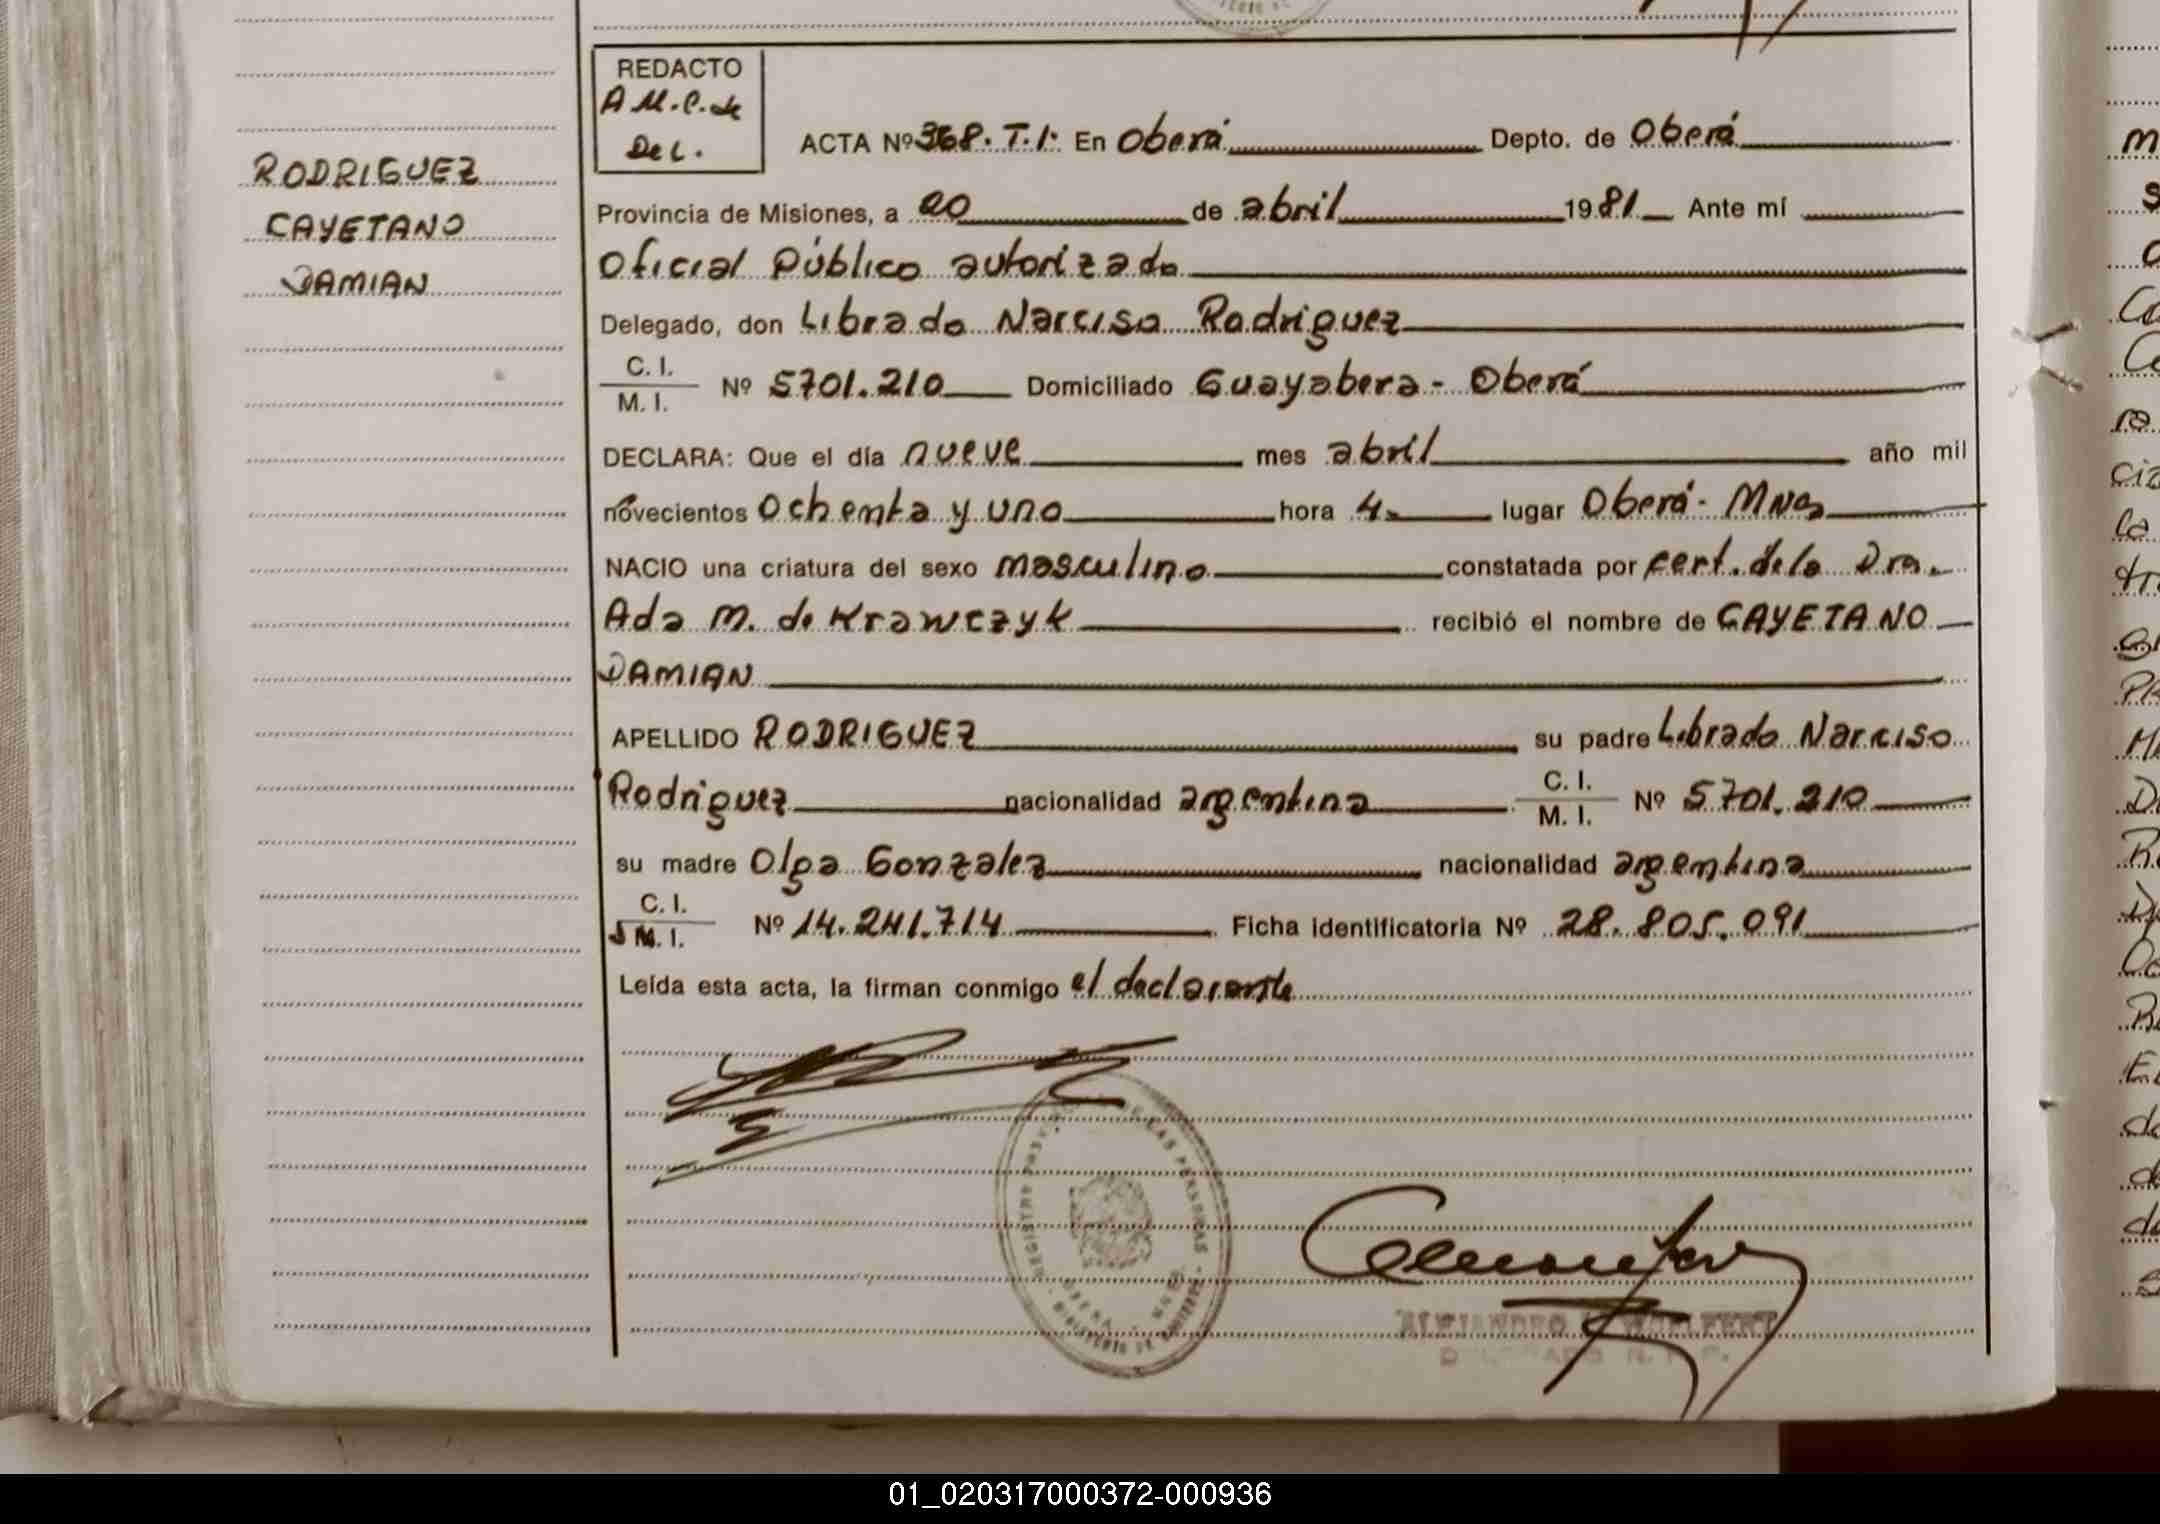 REDACTO
A M.C. de
Del.
RODRIGUEZ
CAYETANO
DAMIAN
ACTA Nº 368. T. 1. En Oberá Depto. de Oberá
Provincia de Misiones, a 20 de abril 1981 Ante mí
Oficial Público autorizado
Delegado, don Librado Narciso Rodriguez
C. I.
M. I. Nº 5701.210 Domiciliado Guayabera - Oberá
DECLARA: Que el día nueve mes abril año mil
novecientos ochenta y uno hora 4. lugar Oberá - Mnes
NACIO una criatura del sexo masculino constatada por cert. de la Dra.
Ada M. de Krawczyk recibió el nombre de CAYETANO
DAMIAN
APELLIDO RODRIGUEZ su padre Librado Narciso
Rodriguez nacionalidad argentina C. I.
M. I. Nº 5701.210
su madre Olga Gonzalez nacionalidad argentina
C. I.
M. I. Nº 14.241.714 Ficha identificatoria Nº 28.805.091
Leída esta acta, la firman conmigo el declarante
ALEJANDRO
01_020317000372-000936